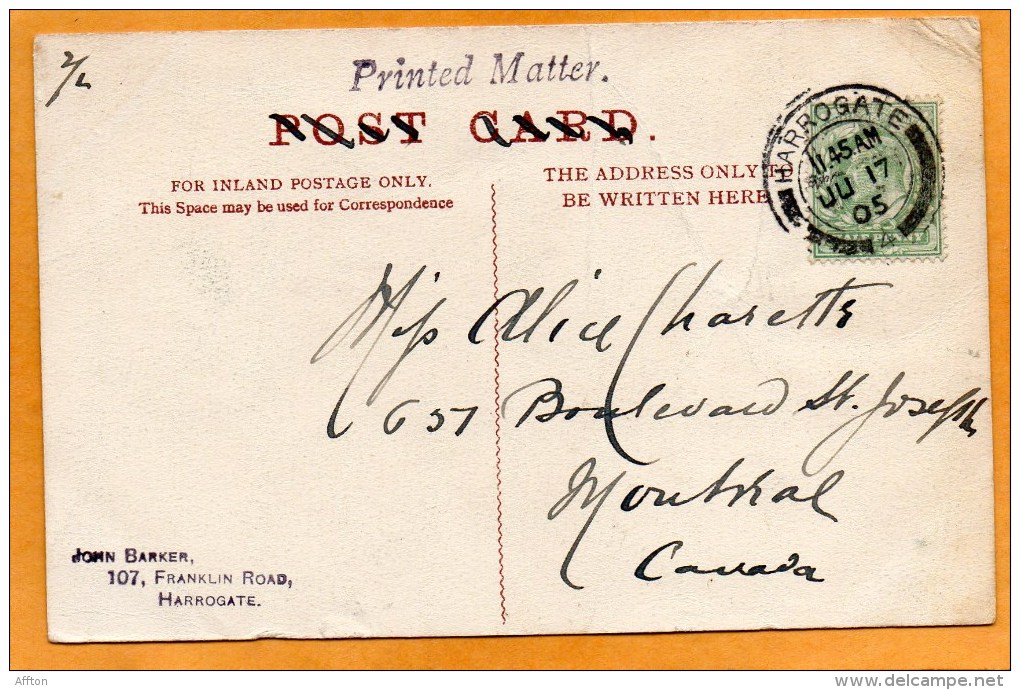 2/L
Printed Matter.
POST CARD.
FOR INLAND POSTAGE ONLY.
This Space may be used for Correspondence
THE ADDRESS ONLY TO
BE WRITTEN HERE
HARROGATE
11.45 AM
JU 17
05
4
Miss Alice Charette
657 Boulevard St. Joseph
Montreal
Canada
JOHN BARKER,
107, FRANKLIN ROAD,
HARROGATE.
Affton
www.delcampe.net